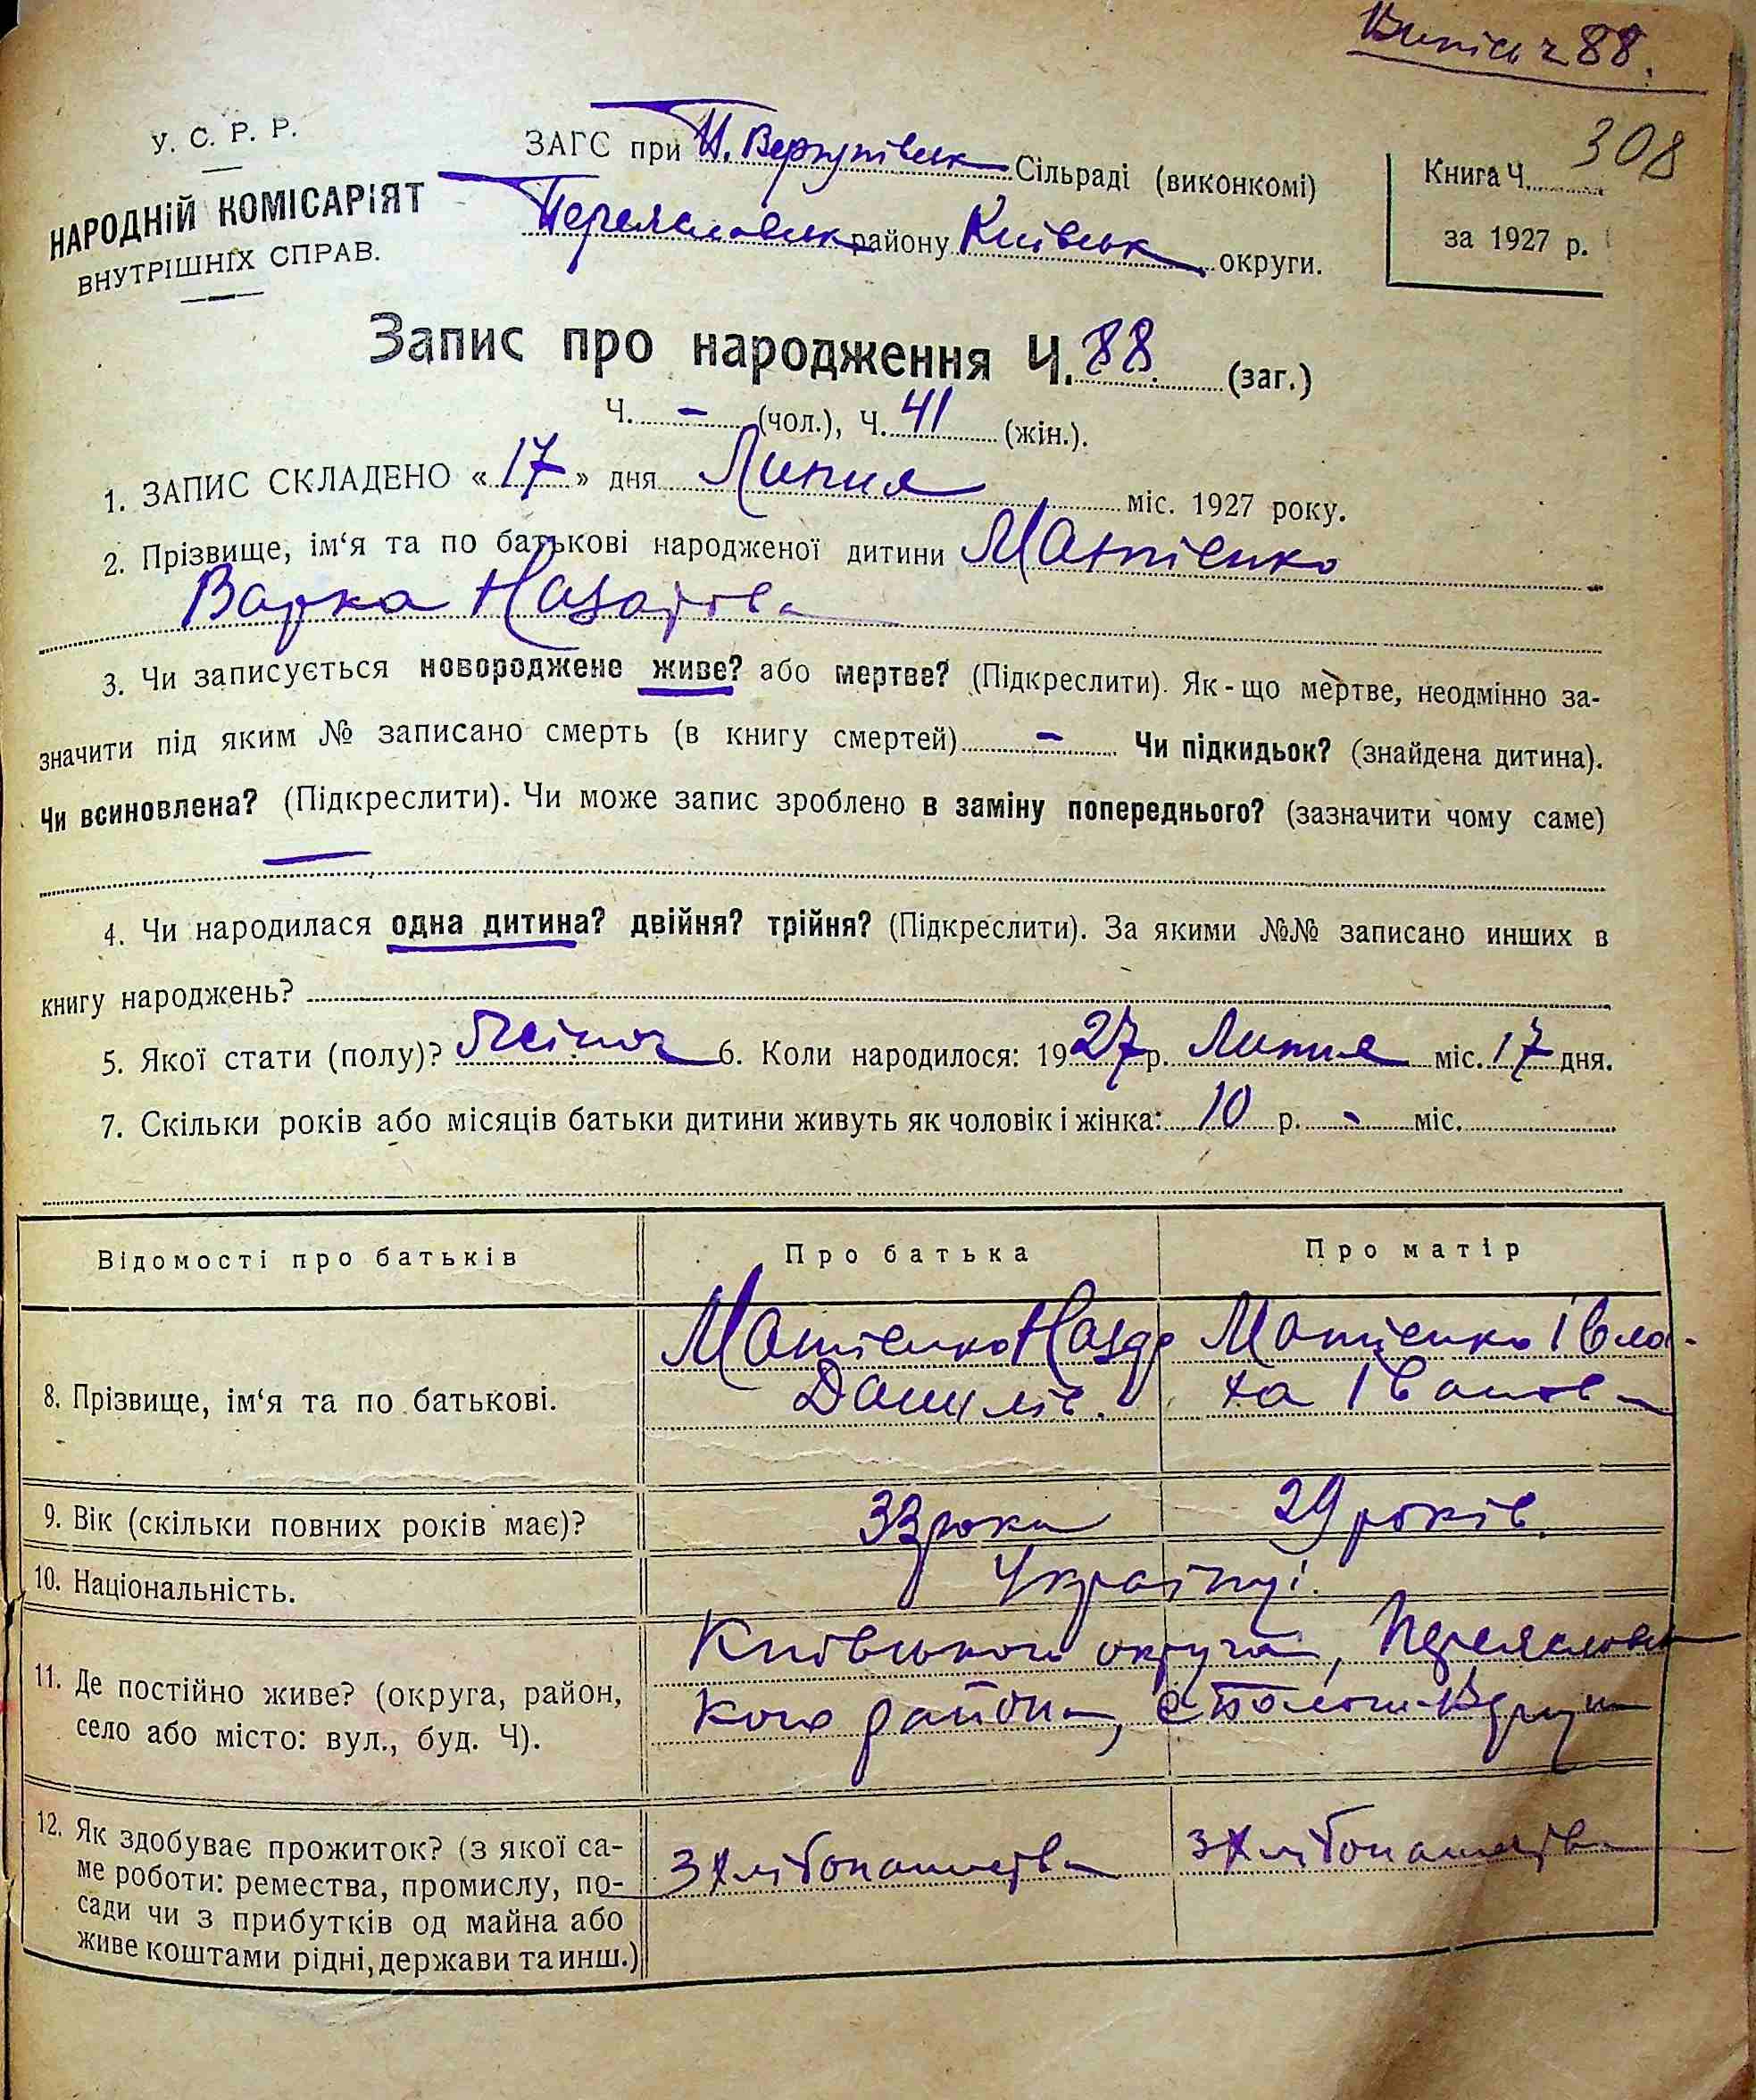 Випись ч 88.
308
У. С. Р. Р.
НАРОДНІЙ КОМІСАРІЯТ
ВНУТРІШНІХ СПРАВ.
ЗАГС при Сільраді (виконкомі)
Переяславськ району Київськ округи.
Книга Ч.
за 1927 р.
Запис про народження Ч. 88. (заг.)
Ч. - (чол.), Ч. 41 (жін.).
1. ЗАПИС СКЛАДЕНО « 17 » дня Липня міс. 1927 року.
2. Прізвище, ім‘я та по батькові народженої дитини Матієнко
Варка Назарова
3. Чи записується новороджене живе? або мертве? (Підкреслити). Як-що мертве, неодмінно за-
значити під яким № записано смерть (в книгу смертей) - Чи підкидьок? (знайдена дитина).
Чи всиновлена? (Підкреслити). Чи може запис зроблено в заміну попереднього? (зазначити чому саме)
—
4. Чи народилася одна дитина? двійня? трійня? (Підкреслити). За якими №№ записано инших в
книгу народжень?
5. Якої стати (полу)? 6. Коли народилося: 1927 р. Липня міс. 17 дня.
7. Скільки років або місяців батьки дитини живуть як чоловік і жінка: 10 р. - міс.
Відомості про батьків Про батька Про матір
8. Прізвище, ім‘я та по батькові.
Матієнко Назар Матієнко Івла-
Даниліч. ха Іванова
9. Вік (скільки повних років має)? 33 роки 29 років.
10. Національність. Українці.
11. Де постійно живе? (округа, район,
село або місто: вул., буд. Ч).
Київського округа, Переяславсь
кого района,
12. Як здобуває прожиток? (з якої са-
ме роботи: ремества, промислу, по-
сади чи з прибутків од майна або
живе коштами рідні, держави та инш.)
З Хлібопашества З Хлібопашества